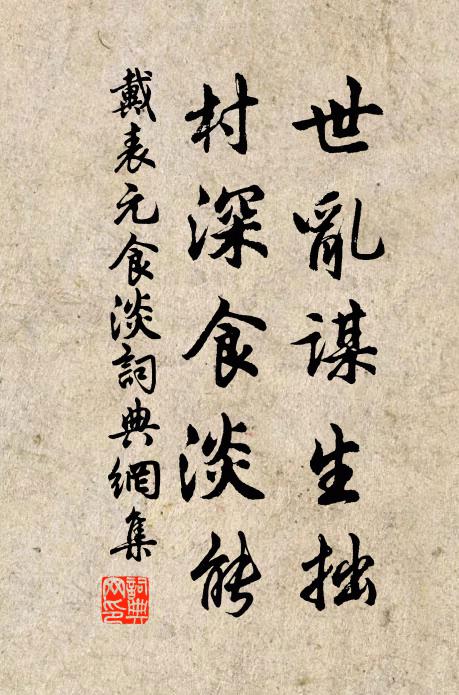 世亂謀生拙
村深食淡能
戴表元食淡詞典網集
詞典網印